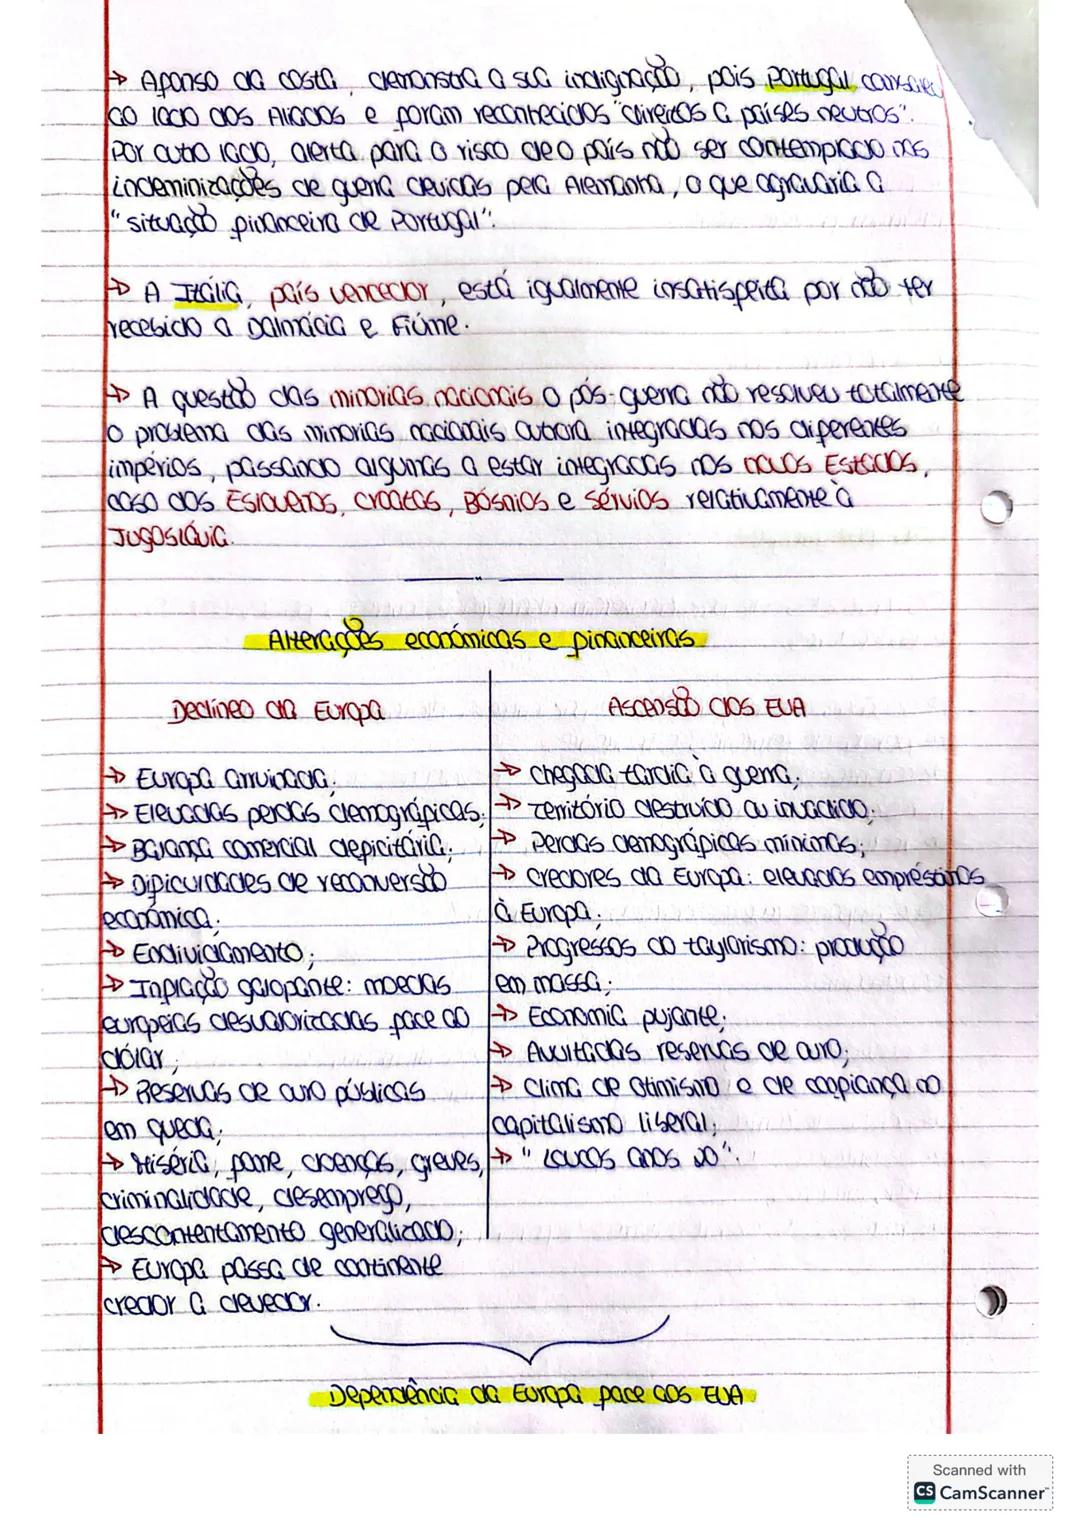 → Afonso da costa, demonstra a sua indignação, pois Portugal
ao lado dos Aliados e foram reconhecidos "direitos a países neutros".
Por outro lado, alerta para o risco de o país não ser contemplado nas
indeminizações de guerra devidas pela Alemanha, o que agravaria a
"situação financeira de Portugal".
→ A Itália, país vencedor, está igualmente insatisfeita por não ter
recebido a Dalmácia e Fiúme.
→ A questão das minorias nacionais o pós-guerra não resolveu totalmente
o problema das minorias nacionais outrora integradas nos diferentes
impérios, passando algumas a estar integradas nos novos Estados,
caso dos Eslovenos, Croatas, Bósnios e Sérvios relativamente à
Jugoslávia.
Alterações económicas e financeiras
Declíneo da Europa
→ Europa arruinada;
→ Elevadas perdas demográficas;
→ Balança comercial deficitária;
→ Dificuldades de reconversão
económica;
→ Endividamento;
→ Inflação galopante: moedas
europeias desvalorizadas face ao
dólar;
→ Reservas de ouro públicas
em queda;
→ Miséria, fome, doenças, greves,
criminalidade, desemprego,
descontentamento generalizado;
→ Europa passa de continente
credor a devedor.
Ascensão dos EUA
→ Chegada tardia à guerra;
→ Território destruído ou invadido;
→ Perdas demográficas mínimas;
→ Credores da Europa: elevados empréstimos
à Europa;
→ Progressos do taylorismo: produção
em massa;
→ Economia pujante;
→ Avultadas reservas de ouro;
→ Clima de otimismo e de confiança no
capitalismo liberal;
→ "Loucos anos 20".
Dependência da Europa face aos EUA
Scanned with
CS CamScanner